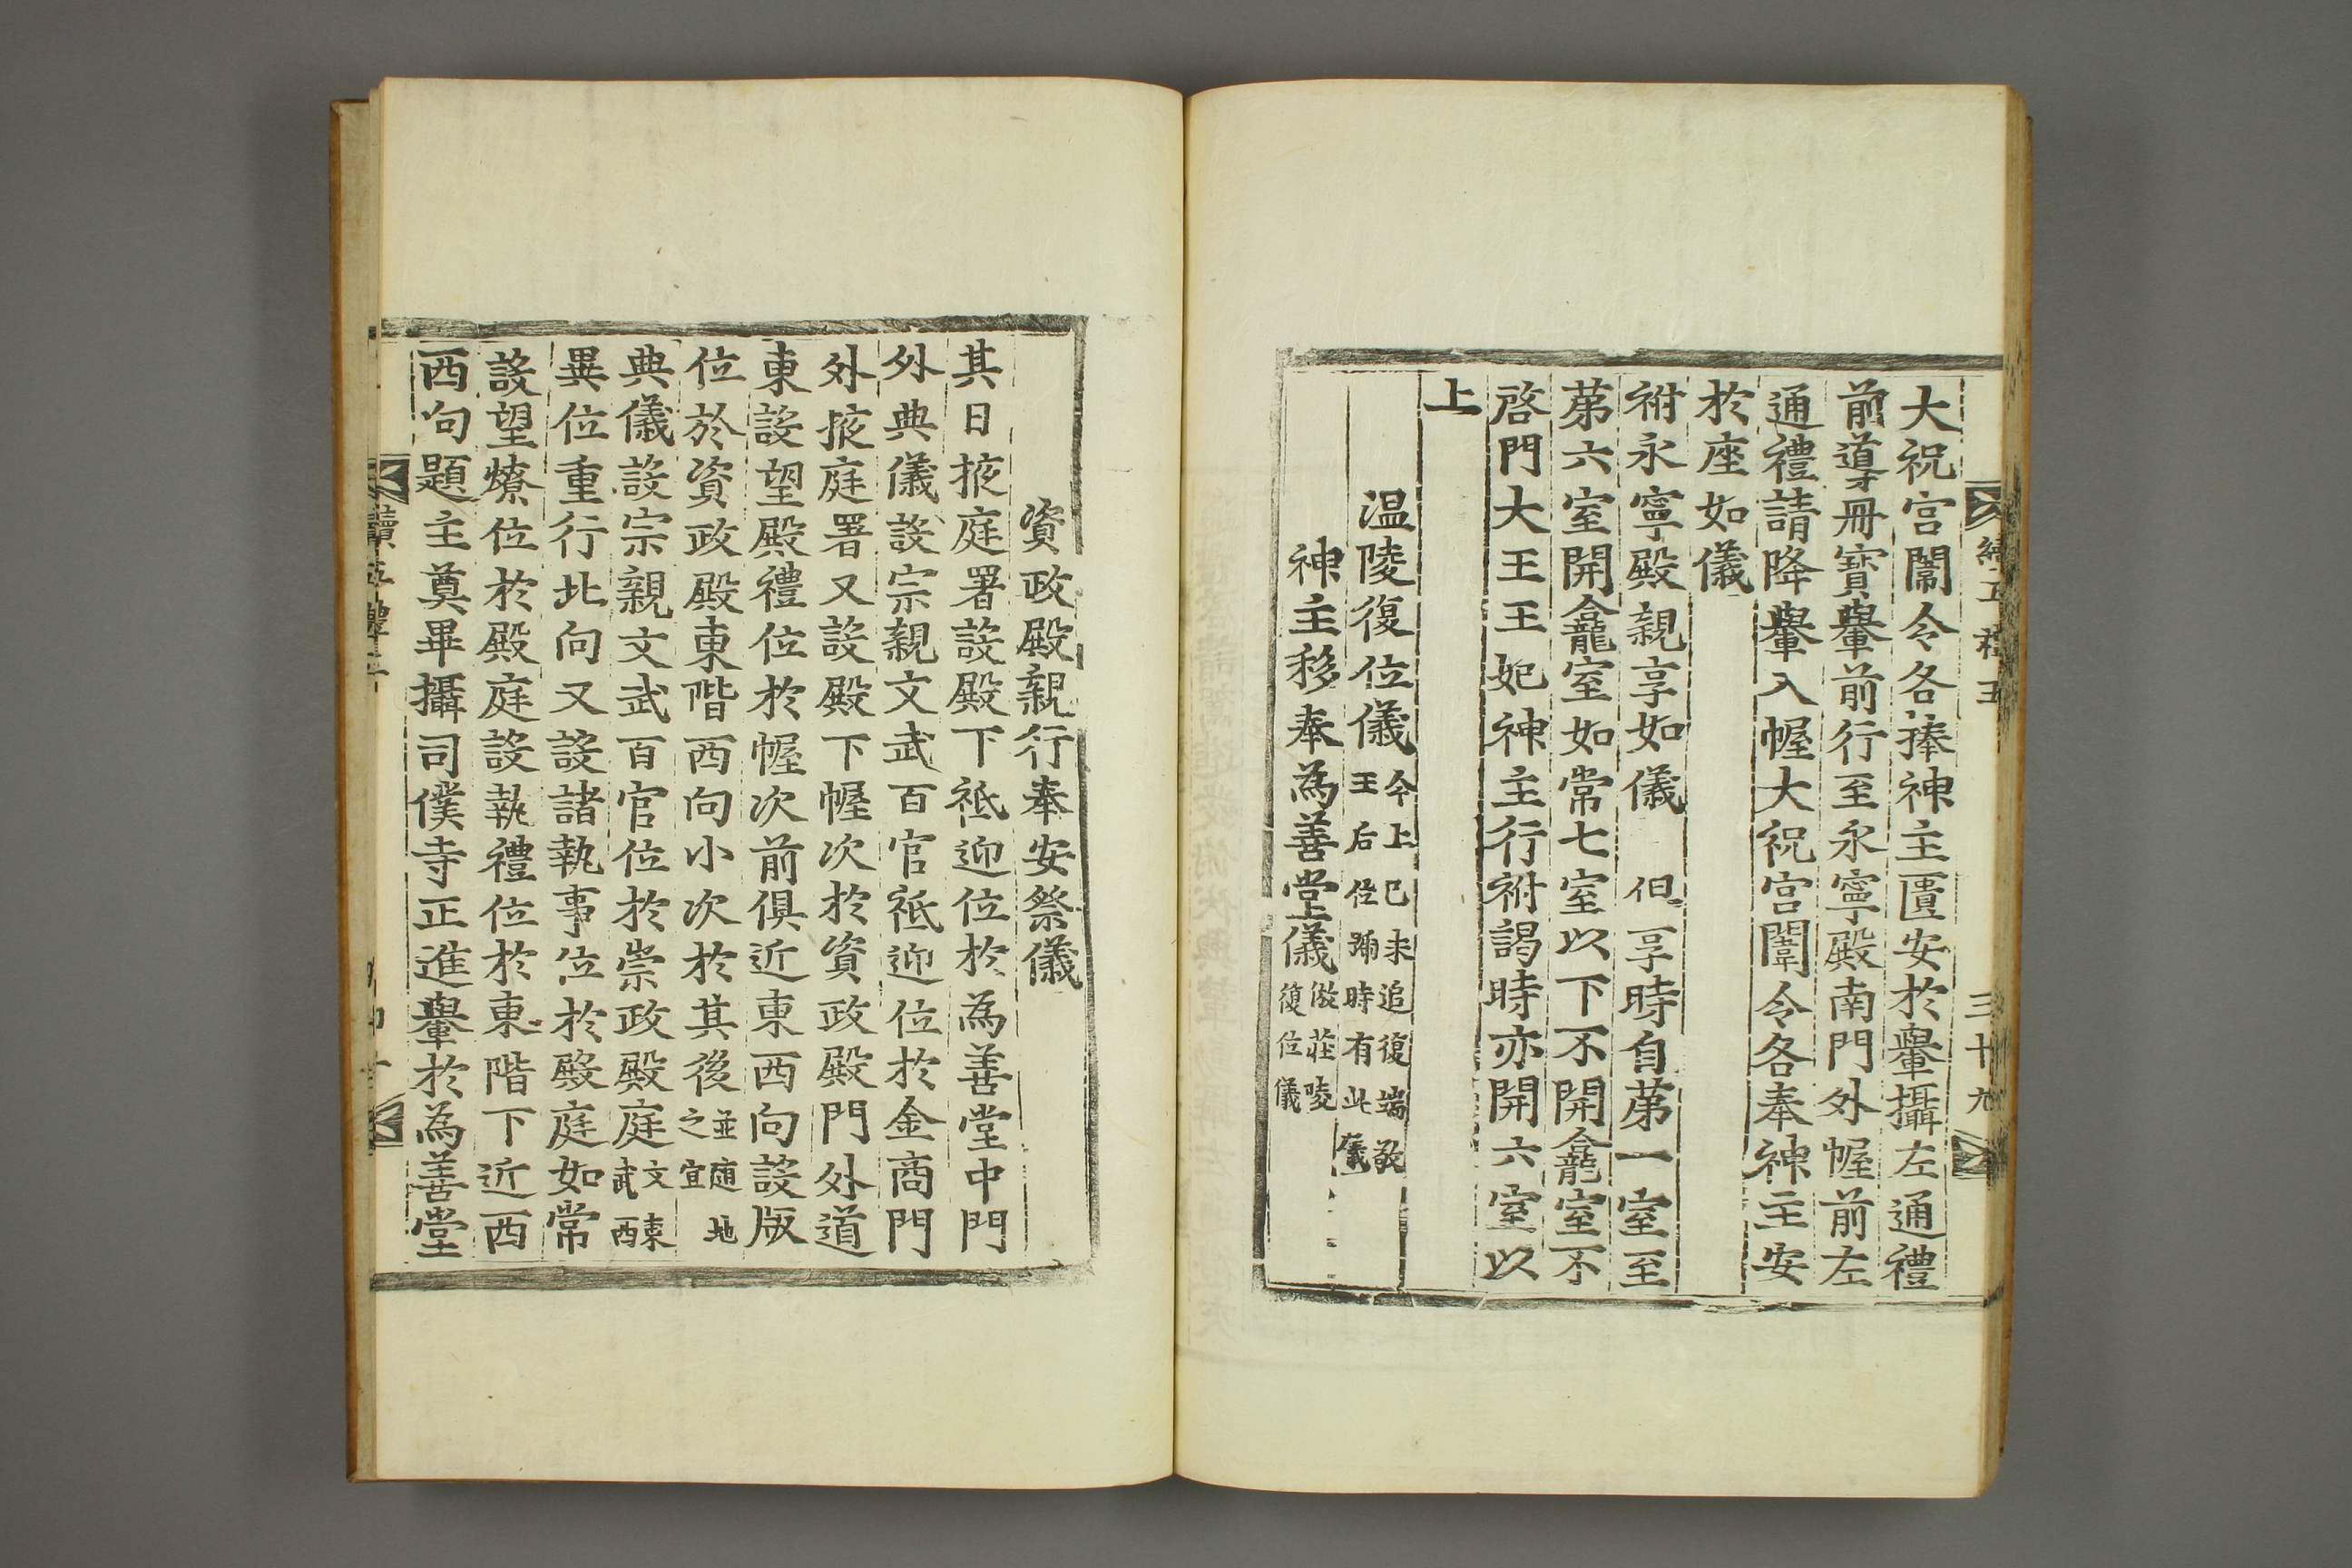 大祝宮闈令各捧神主匱安於轝攝左通禮
前導冊寶轝前行至永寧殿南門外幄前左
通禮請降轝入幄大祝宮闈令各奉神主安
於座如儀
祔永寧殿親享如儀 但享時自苐一室至
苐六室開龕室如常七室以下不開龕室不
啓門大王王妃神主行祔謁時亦開六室以
上
温陵復位儀 今上己未追復端敬王后位號時有此儀
神主移奉為善堂儀 倣莊陵復位儀
三十九
資政殿親行奉安祭儀
其日掖庭署設殿下祗迎位於為善堂中門
外典儀設宗親文武百官祗迎位於金商門
外掖庭署又設殿下幄次於資政殿門外道
東設望殿禮位於幄次前俱近東西向設版
位於資政殿東階西向小次於其後 並隨地之宜
典儀設宗親文武百官位於崇政殿庭 文東武西
異位重行北向又設諸執事位於殿庭如常
設望燎位於殿庭設執禮位於東階下近西
西向題主奠畢攝司僕寺正進轝於為善堂